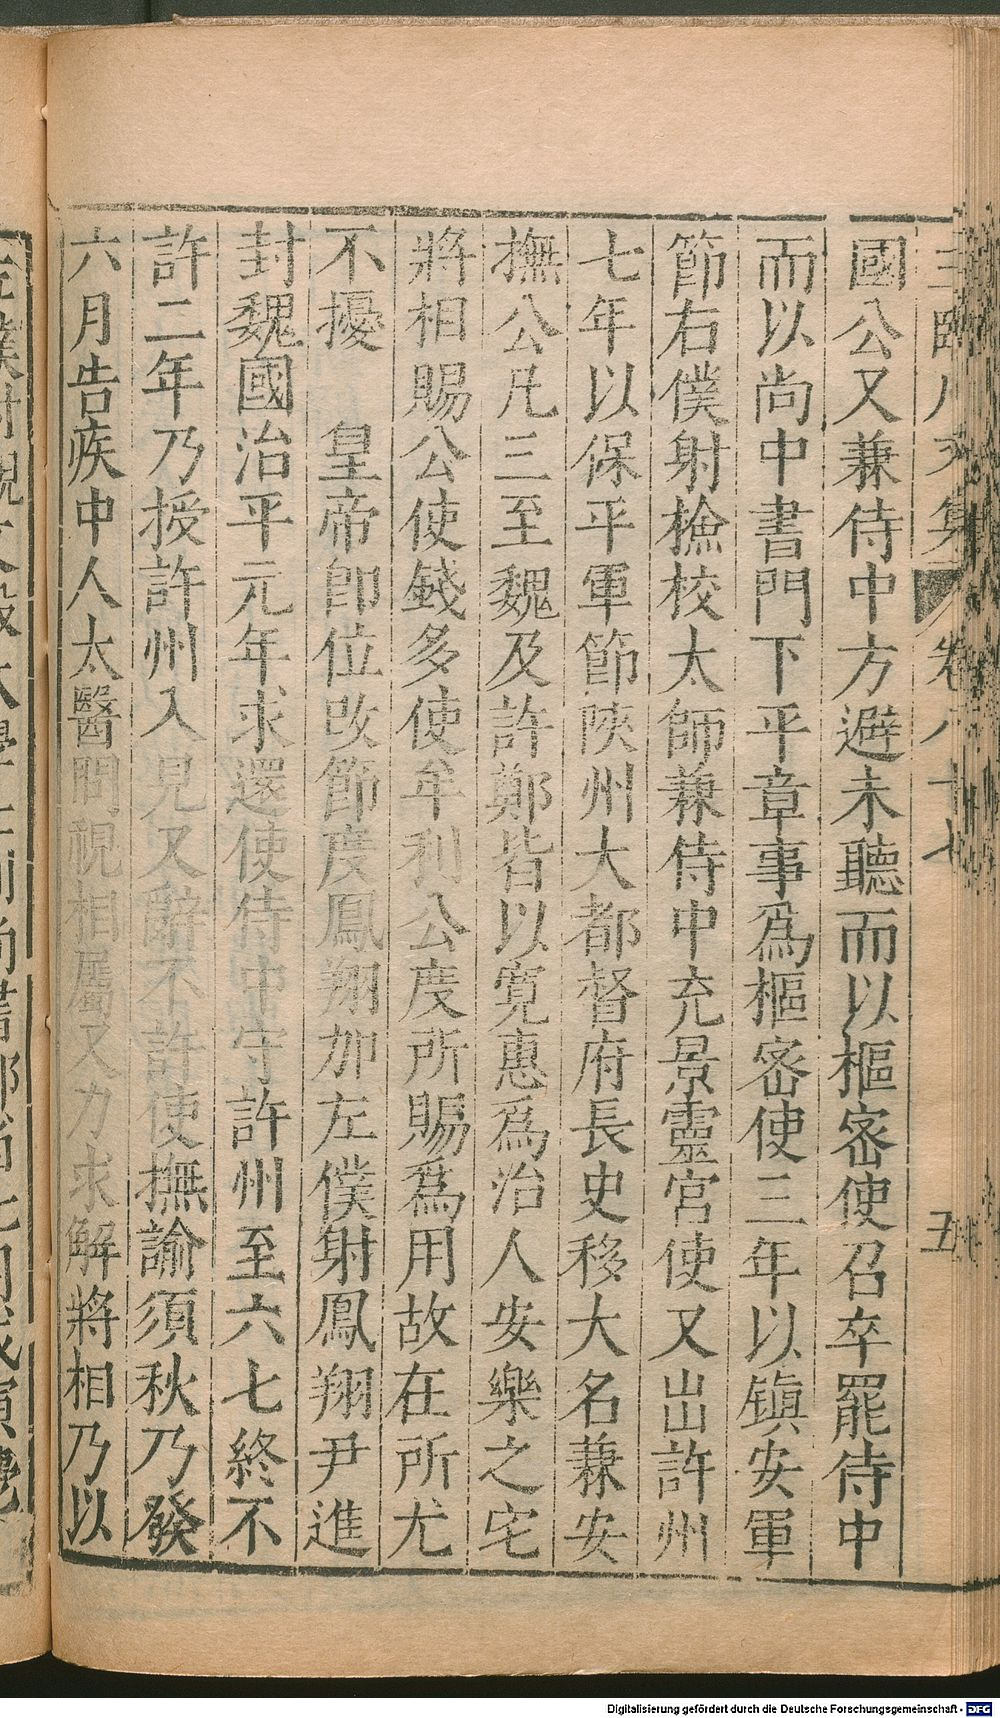 國公又兼侍中方避未聽而以樞宻使召卒罷侍中
而以尚中書門下平章事爲樞宻使三年以鎮安軍
節右僕射撿校太師兼侍中充景靈宮使又出許州
七年以保平軍節陜州大都督府長史移大名兼安
撫公凡三至魏及許鄭皆以寛惠爲治人安樂之宅
將相賜公使錢多使牟利公度所賜爲用故在所尤
不擾　皇帝卽位改節度鳳翔加左僕射鳳翔尹進
封魏國治平元年求還使侍中守許州至六七終不
許二年乃授許州入見又辭不許使撫諭須秋乃發
六月告疾中人太醫問視相屬又力求解將相乃以
卷八十七
五
Digitalisierung gefördert durch die Deutsche Forschungsgemeinschaft - DFG